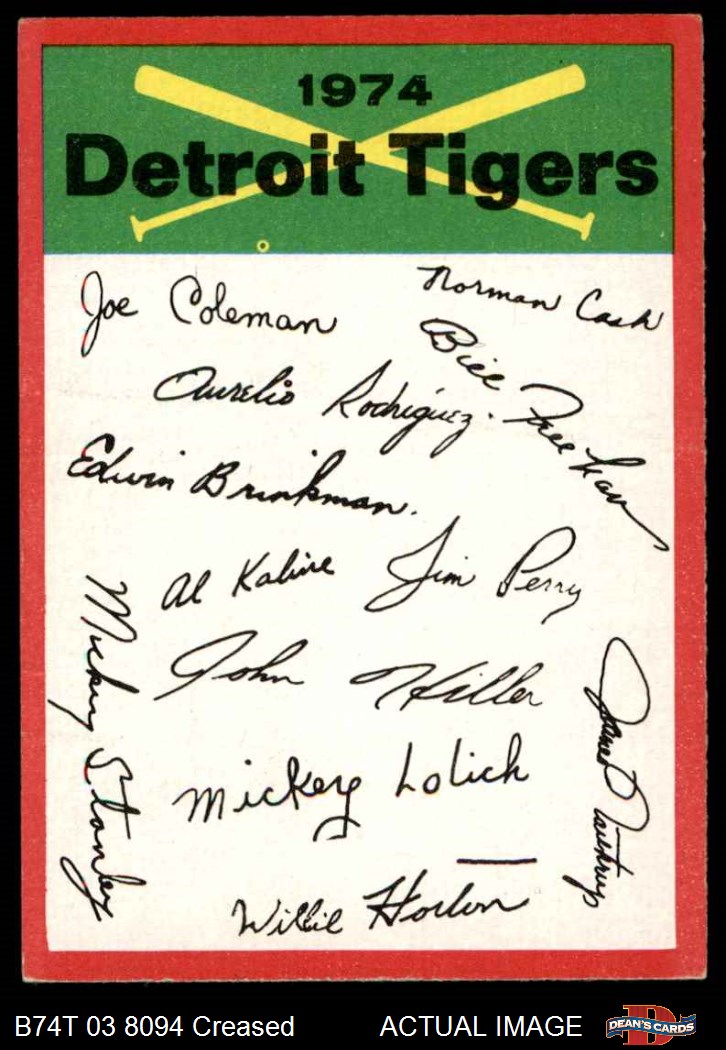 1974
Detroit Tigers
Joe Coleman
Norman Cash
Bill Freehan
Aurelio Rodriguez.
Edwin Brinkman.
Al Kaline
Jim Perry
Mickey Stanley
John Hiller
James Northrup
Mickey Lolich
Willie Horton
B74T 03 8094 Creased
ACTUAL IMAGE
D
DEAN'S CARDS